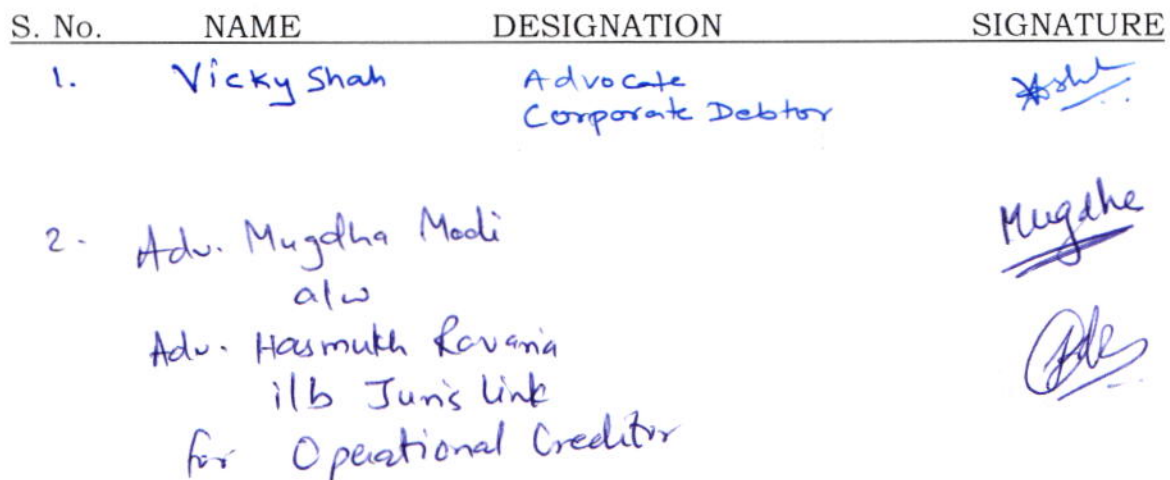 S. No. NAME DESIGNATION SIGNATURE
1. Vicky Shah Advocate
Corporate Debtor
2. Adv. Mugdha Modi Mugdha
a/w
Adv. Hasmukh Ravaria
i/b Juris Link
for Operational Creditor